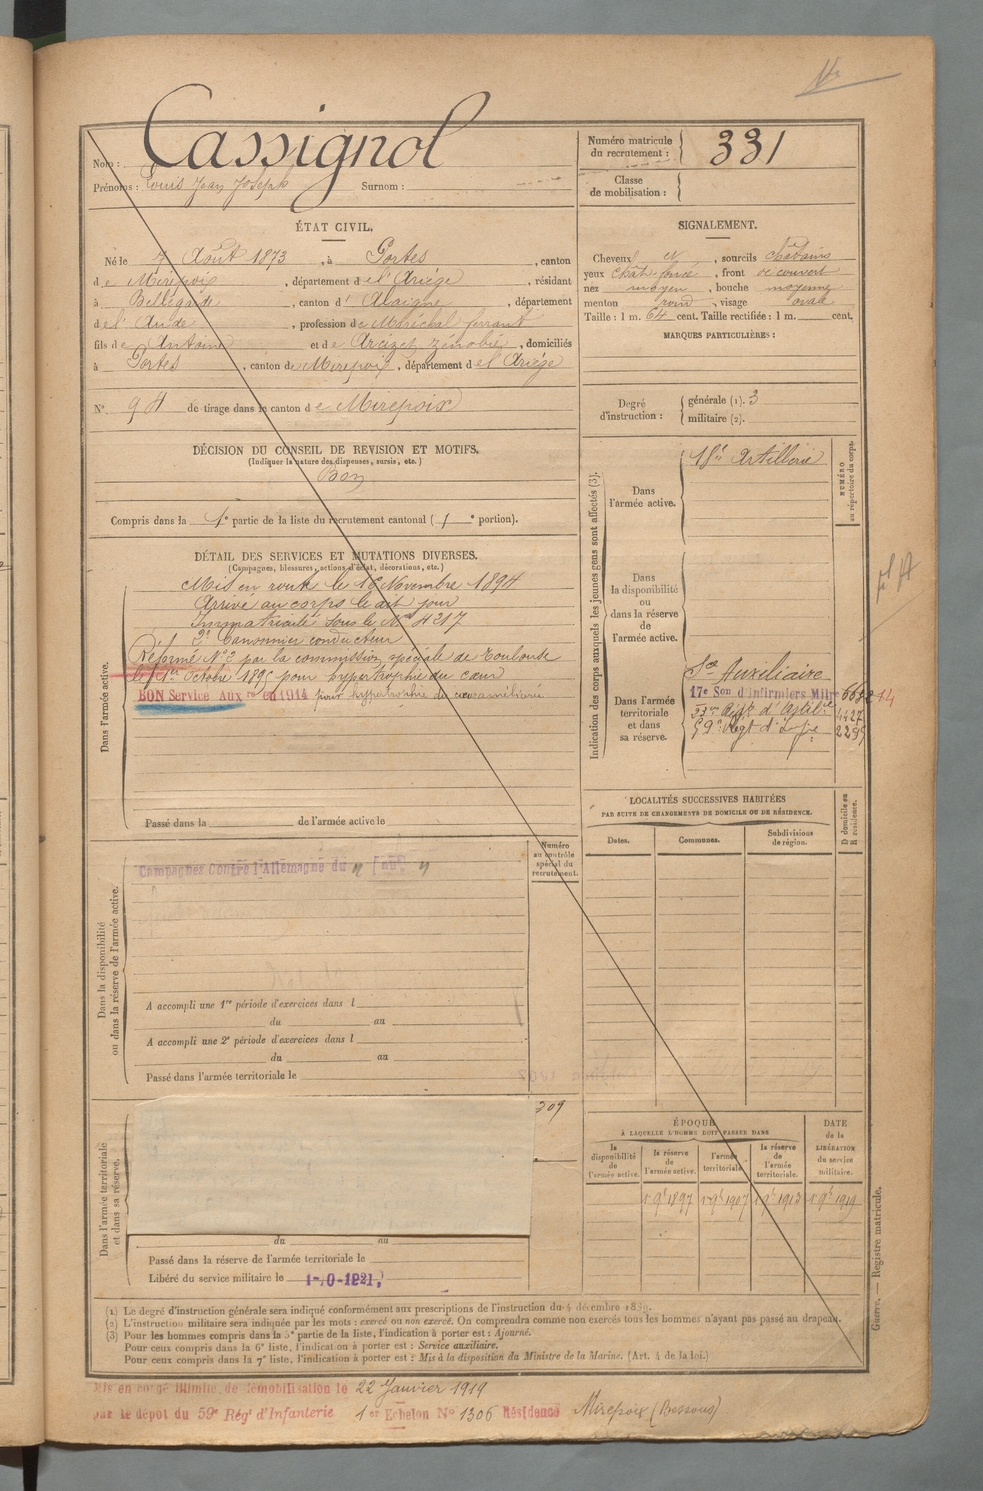 Cassignol
Nom :
Prénoms : Louis Jean Joseph Surnom :
Numéro matricule
du recrutement : 331
Classe
de mobilisation :
ÉTAT CIVIL.
Né le 7 Août 1873, à Portes, canton
de Mirepoix, département de l'Ariège, résidant
à Bellegarde, canton d'Alaigne, département
de l'Aude, profession de Maréchal ferrant
fils de Antoine et de Arazet Zénobie, domiciliés
à Portes, canton de Mirepoix, département de l'Ariège
N° 94 de tirage dans le canton de Mirepoix
SIGNALEMENT.
Cheveux et, sourcils châtains
yeux chât. foncé, front découvert
nez moyen, bouche moyenne
menton rond, visage ovale
Taille : 1 m. 64 cent. Taille rectifiée : 1 m. cent.
MARQUES PARTICULIÈRES :
Degré
d'instruction :
générale (1). 3
militaire (2).
DÉCISION DU CONSEIL DE REVISION ET MOTIFS.
(Indiquer la nature des dispenses, sursis, etc.)
Bon
Compris dans la 1e partie de la liste du recrutement cantonal (1e portion).
DÉTAIL DES SERVICES ET MUTATIONS DIVERSES.
(Campagnes, blessures, actions d'éclat, décorations, etc.)
Dans l'armée active.
Mis en route le 16 Novembre 1894
Arrivé au corps le dit jour
Immatriculé sous le N° 4217
2e Canonnier conducteur
Réformé N° 2 par la commission spéciale de Toulouse
le 1er Octobre 1895 pour hypertrophie du cœur
BON Service Auxre en 1914 pour hypertrophie du cœur
Passé dans la de l'armée active le
Indication des corps auxquels les jeunes gens sont affectés (3).
NUMÉRO
au répertoire du corps.
Dans
l'armée active.
18e Artillerie
Dans
la disponibilité
ou
dans la réserve
de
l'armée active.
Dans l'armée
territoriale
et dans
sa réserve.
Sce Auxiliaire
17e Son d'Infirmiers Milre
d'Artilie
59e Régt d'Infie
LOCALITÉS SUCCESSIVES HABITÉES
PAR SUITE DE CHANGEMENTS DE DOMICILE OU DE RÉSIDENCE.
Dates.
Communes.
Subdivisions
de région.
D domicile ou
R résidence.
Dans la disponibilité
ou dans la réserve de l'armée active.
Numéro
au contrôle
spécial du
recrutement.
Campagnes Contre l'Allemagne du au
A accompli une 1re période d'exercices dans l
du au
A accompli une 2e période d'exercices dans l
du au
Passé dans l'armée territoriale le
Dans l'armée territoriale
et dans sa réserve.
309
du au
Passé dans la réserve de l'armée territoriale le
Libéré du service militaire le
ÉPOQUE
À LAQUELLE L'HOMME DOIT PASSER DANS
la
disponibilité
de
l'armée active.
la réserve
de
l'armée active.
l'armée
territoriale.
la réserve
de
l'armée
territoriale.
DATE
de la
LIBÉRATION
du service
militaire.
1 9e 1897 1 9e 1907 1 9e 1913 1 9e 1919
(1) Le degré d'instruction générale sera indiqué conformément aux prescriptions de l'instruction du 4 décembre 1889.
(2) L'instruction militaire sera indiquée par les mots : exercé ou non exercé. On comprendra comme non exercés tous les hommes n'ayant pas passé au drapeau.
(3) Pour les hommes compris dans la 5e partie de la liste, l'indication à porter est : Ajourné.
Pour ceux compris dans la 6e liste, l'indication à porter est : Service auxiliaire.
Pour ceux compris dans la 7e liste, l'indication à porter est : Mis à la disposition du Ministre de la Marine. (Art. 4 de la loi.)
Guerre. — Registre matricule.
Mis en congé illimité de démobilisation le 22 Janvier 1919
par le dépôt du 59e Régt d'Infanterie 1er Echelon N° 1306 Résidence Mirepoix (Bessous)